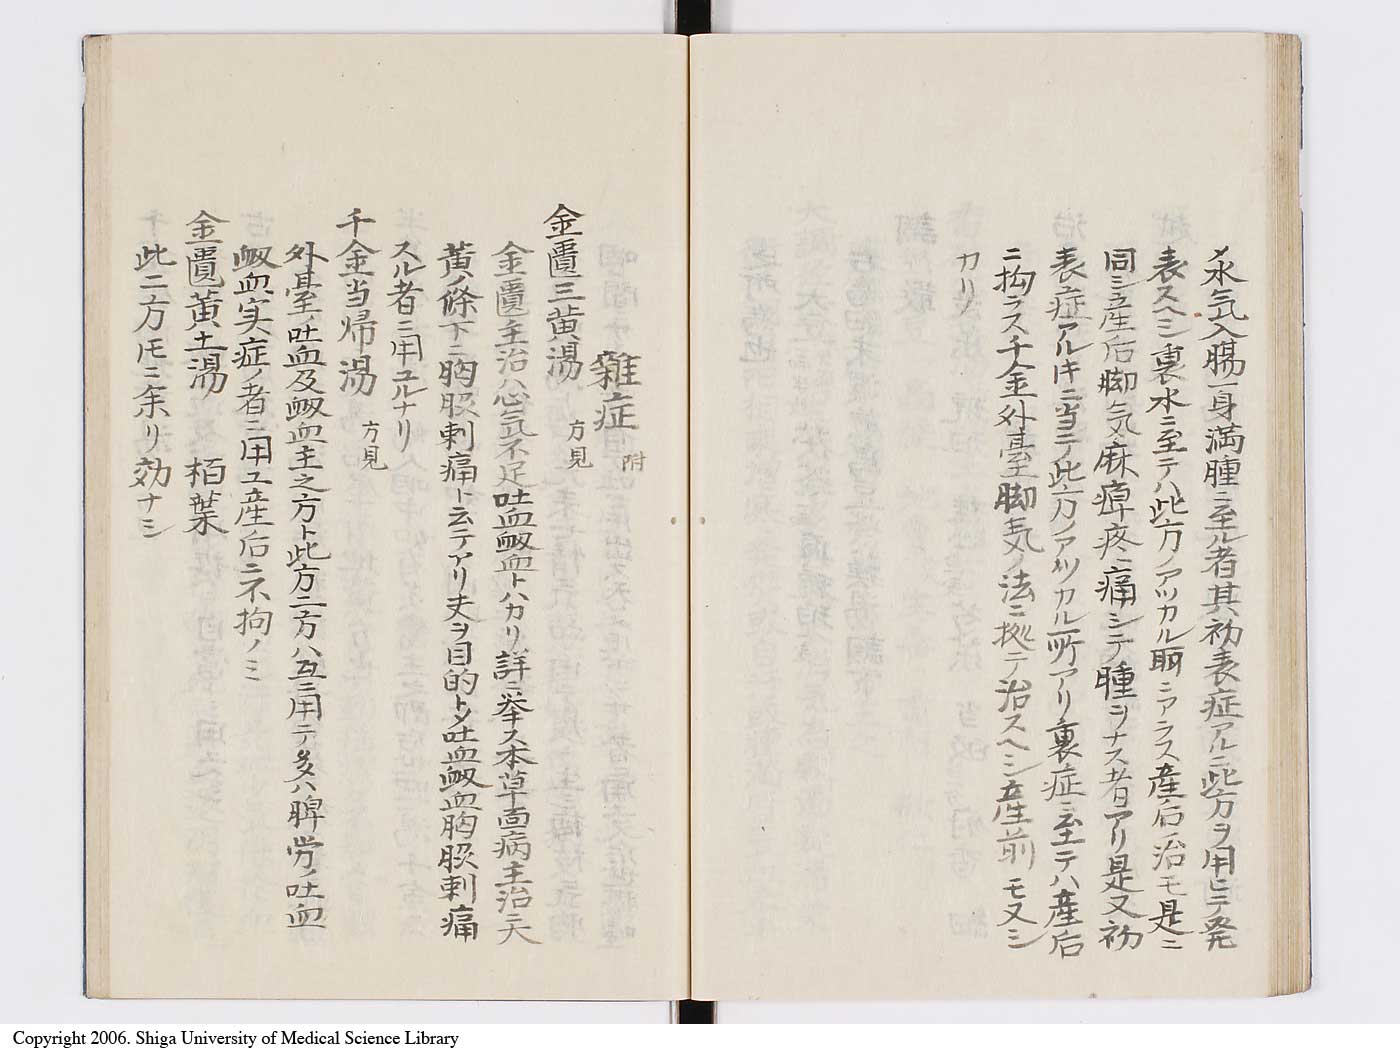 水気入腸一身満腫ニ至ル者其初表症アルニ此方ヲ用ヒテ発
表スヘシ裏水ニ至テハ此方ノアツカル所ニアラス産后治モ是ニ
同シ産后脚気麻痺疼痛シテ腫ヲナス者アリ是又初
表症アルキニ当テ此方ノアツカル所アリ裏症ニ至テハ産后
ニ拘ラス千金外臺脚気ノ法ニ拠テ治スヘシ産前モ又シ
カリ
雑症 附
金匱三黄湯 方見
金匱主治ハ心気不足吐血衂血トハカリ詳ニ挙ス本草面病主治ニ大
黄ノ條下ニ胸脇刺痛ト云テアリ丈ヲ目的トメ吐血衂血胸脇刺痛
スル者ニ用ユルナリ
千金当帰湯 方見
外臺ノ吐血及衂血主之方ト此方二方ハ互ニ用テ多ハ脾労ノ吐血
衂血実症ノ者ニ用ユ産后ニ不拘ノミ
金匱黄土湯 栢葉
此二方モニ余リ効ナシ
Copyright 2006. Shiga University of Medical Science Library